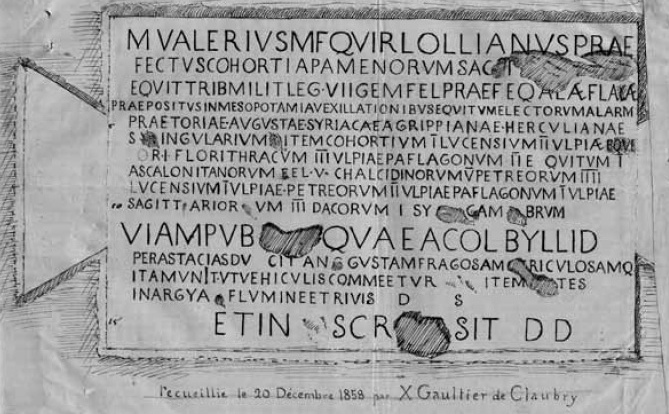 M VALERIVS M F QVIR LOLLIANVS PRAE
FECTVS COHORTI APAMENORVM SAGIT
EQVIT TRIB MILIT LEG·VII GEM FEL PRAEF EQ ALÆ FLAVÆ
PRAEPOSITVS IN MESOPOTAMIA VEXILLATIONIBVS EQVITVM ELECTORVM ALARVM
PRAETORIAE·AVGVSTAE·SYRIACAE AGRIPPIANAE·HERCVLIANAE
SINGVLARIVM ITEM COHORTIVM I LVCENSIVM II VLPIAE EQVI
FLORI THRACVM III VLPIAE PAFLAGONVM II EQVITVM I
ASCALONITANORVM CHALCIDINORVM V PETREORVM IIII
LVCENSIVM I VLPIAE·PETREORVM II VLPIAE PAFLAGONVM I VLPIAE
10 SAGITTARIOR VM III DACORVM I SY GAM BRVM
VIAM PVB QVAE A COL BYLLID
PER ASTACIAS DV CIT ANGVSTAM FRAGOSAM RICVLOSAMQ
ITA MVNIT VT VEHICVLIS COMMEETVR ITEM TES
IN ARGYA FLVMINE ET RIVIS D S
15 ET IN SCR SIT D D
recueillie le 20 Décembre 1858 par X Gaultier de Claubry